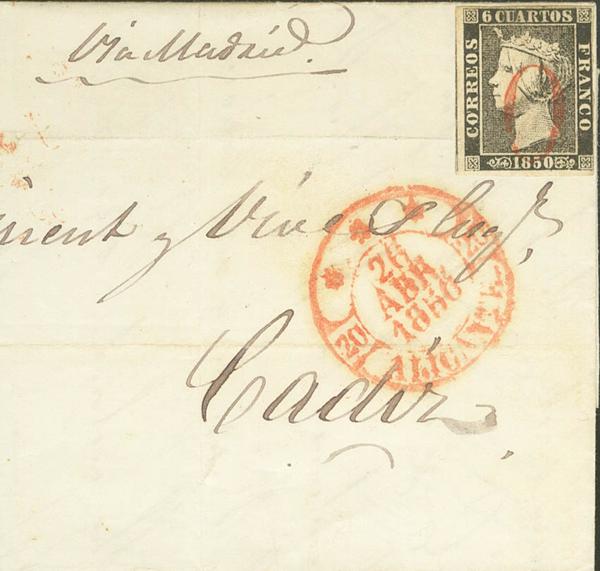 Via Madrid.
6 CUARTOS
CORREOS
FRANCO
1850
y Vives
26
ABR
1850
20
ALICANTE
Cadiz